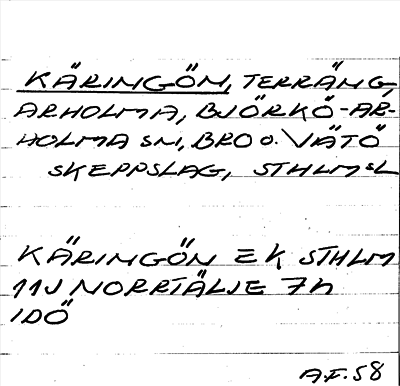 KÄRINGÖN, TERRÄNG,
ARHOLMA, BJÖRKÖ-AR-
HOLMA SN, BRO O. VÄTÖ
SKEPPSLAG, STHLMSL
KÄRINGÖN EK STHLM
11J NORRTÄLJE 7h
IDÖ
A.F. 58